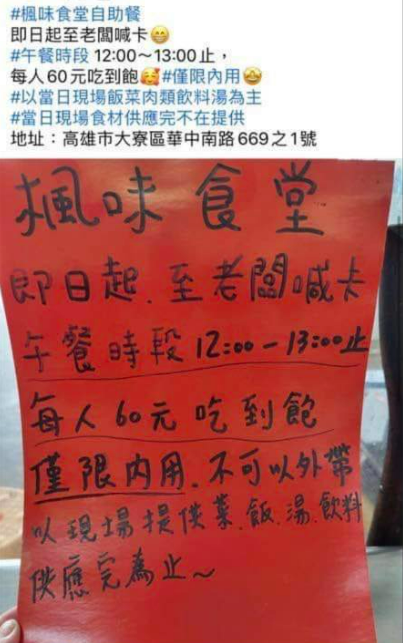 #楓味食堂自助餐
即日起至老闆喊卡😁
#午餐時段 12:00~13:00止，
每人60元吃到飽🥰#僅限內用🤩
#以當日現場飯菜肉類飲料湯為主
#當日現場食材供應完不在提供
地址：高雄市大寮區華中南路669之1號
楓味食堂
即日起.至老闆喊卡
午餐時段12:00-13:00止
每人60元吃到飽
僅限內用.不可以外帶
以現場提供菜.飯.湯.飲料
供應完為止~